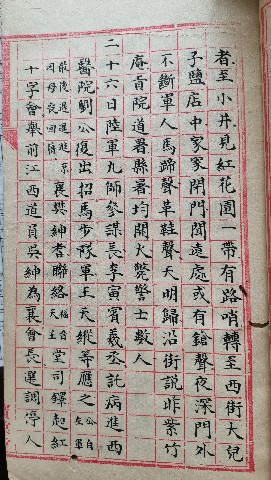 者至小井見紅花園一帶有路哨轉至西街大兒
子鹽店中家家閉門閒遠處或有鎗聲夜深門外
不斷軍人馬蹄聲革鞋聲天明歸沿街説昨紫竹
庵貢院道署縣署均開火斃警士數人
二十六日陸軍九師參謀長李寅賓義丞託病進西
醫院劉公復出招馬步隊軍王天縱等應之公自左軍
嚴陵選進京因母喪回籍襄樊紳者聯絡福音天主堂司鐸起紅
十字會舉前江西道員吳紳為襄會長選調停人